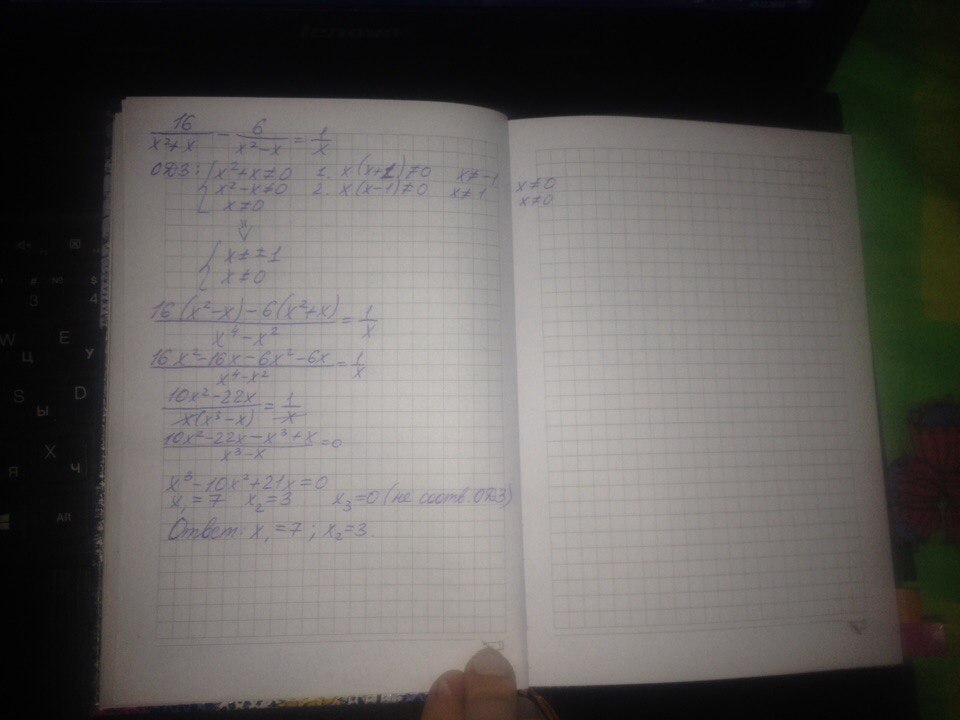 lenovo
16/(x²+x) - 6/(x²-x) = 1/x
ОДЗ: { x²+x≠0 1. x(x+1)≠0 x≠-1 x≠0
x²-x≠0 2. x(x-1)≠0 x≠1 x≠0
x≠0
⇓
{ x≠±1
x≠0
(16(x²-x)-6(x²+x))/(x⁴-x²) = 1/x
(16x²-16x-6x²-6x)/(x⁴-x²) = 1/x
(10x²-22x)/(x(x³-x)) = 1/x
(10x²-22x-x³+x)/(x³-x) = 0
x³-10x²+21x=0
x₁=7 x₂=3 x₃=0 (не соотв. ОДЗ)
Ответ: x₁=7; x₂=3.
# № $
3 4
W E
Ц У
S D
Ы В
X
Я Ч
Alt